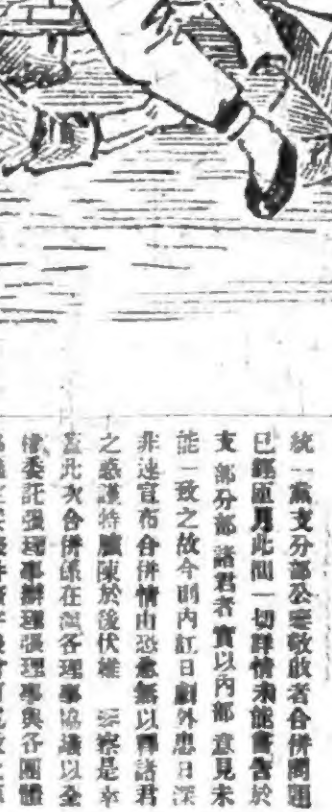 統一黨支分部公鑒敬啟者合併問題
已經匝月此間一切詳情未能書告於
支部分部諸君者實以內部意見未
能一致之故今則內訌日劇外患日深
非速宣布合併情由恐愈無以釋諸君
之惑謹特臚陳於後伏維 察是幸
蓋此次合併係在滬各理事協議以全
權委託張理事辦理張理事與各團體